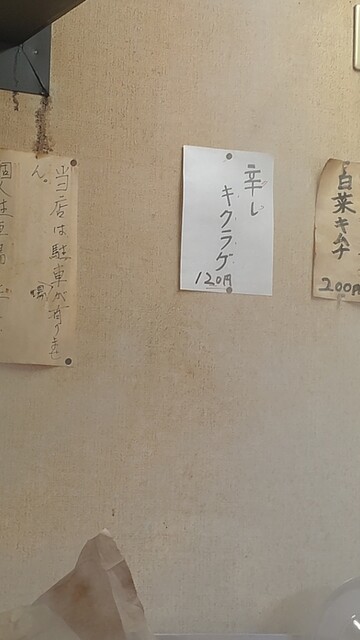 白菜キムチ
200円
辛し
キクラゲ
120円
当店は駐車場が有りませ
ん。
個人駐車場